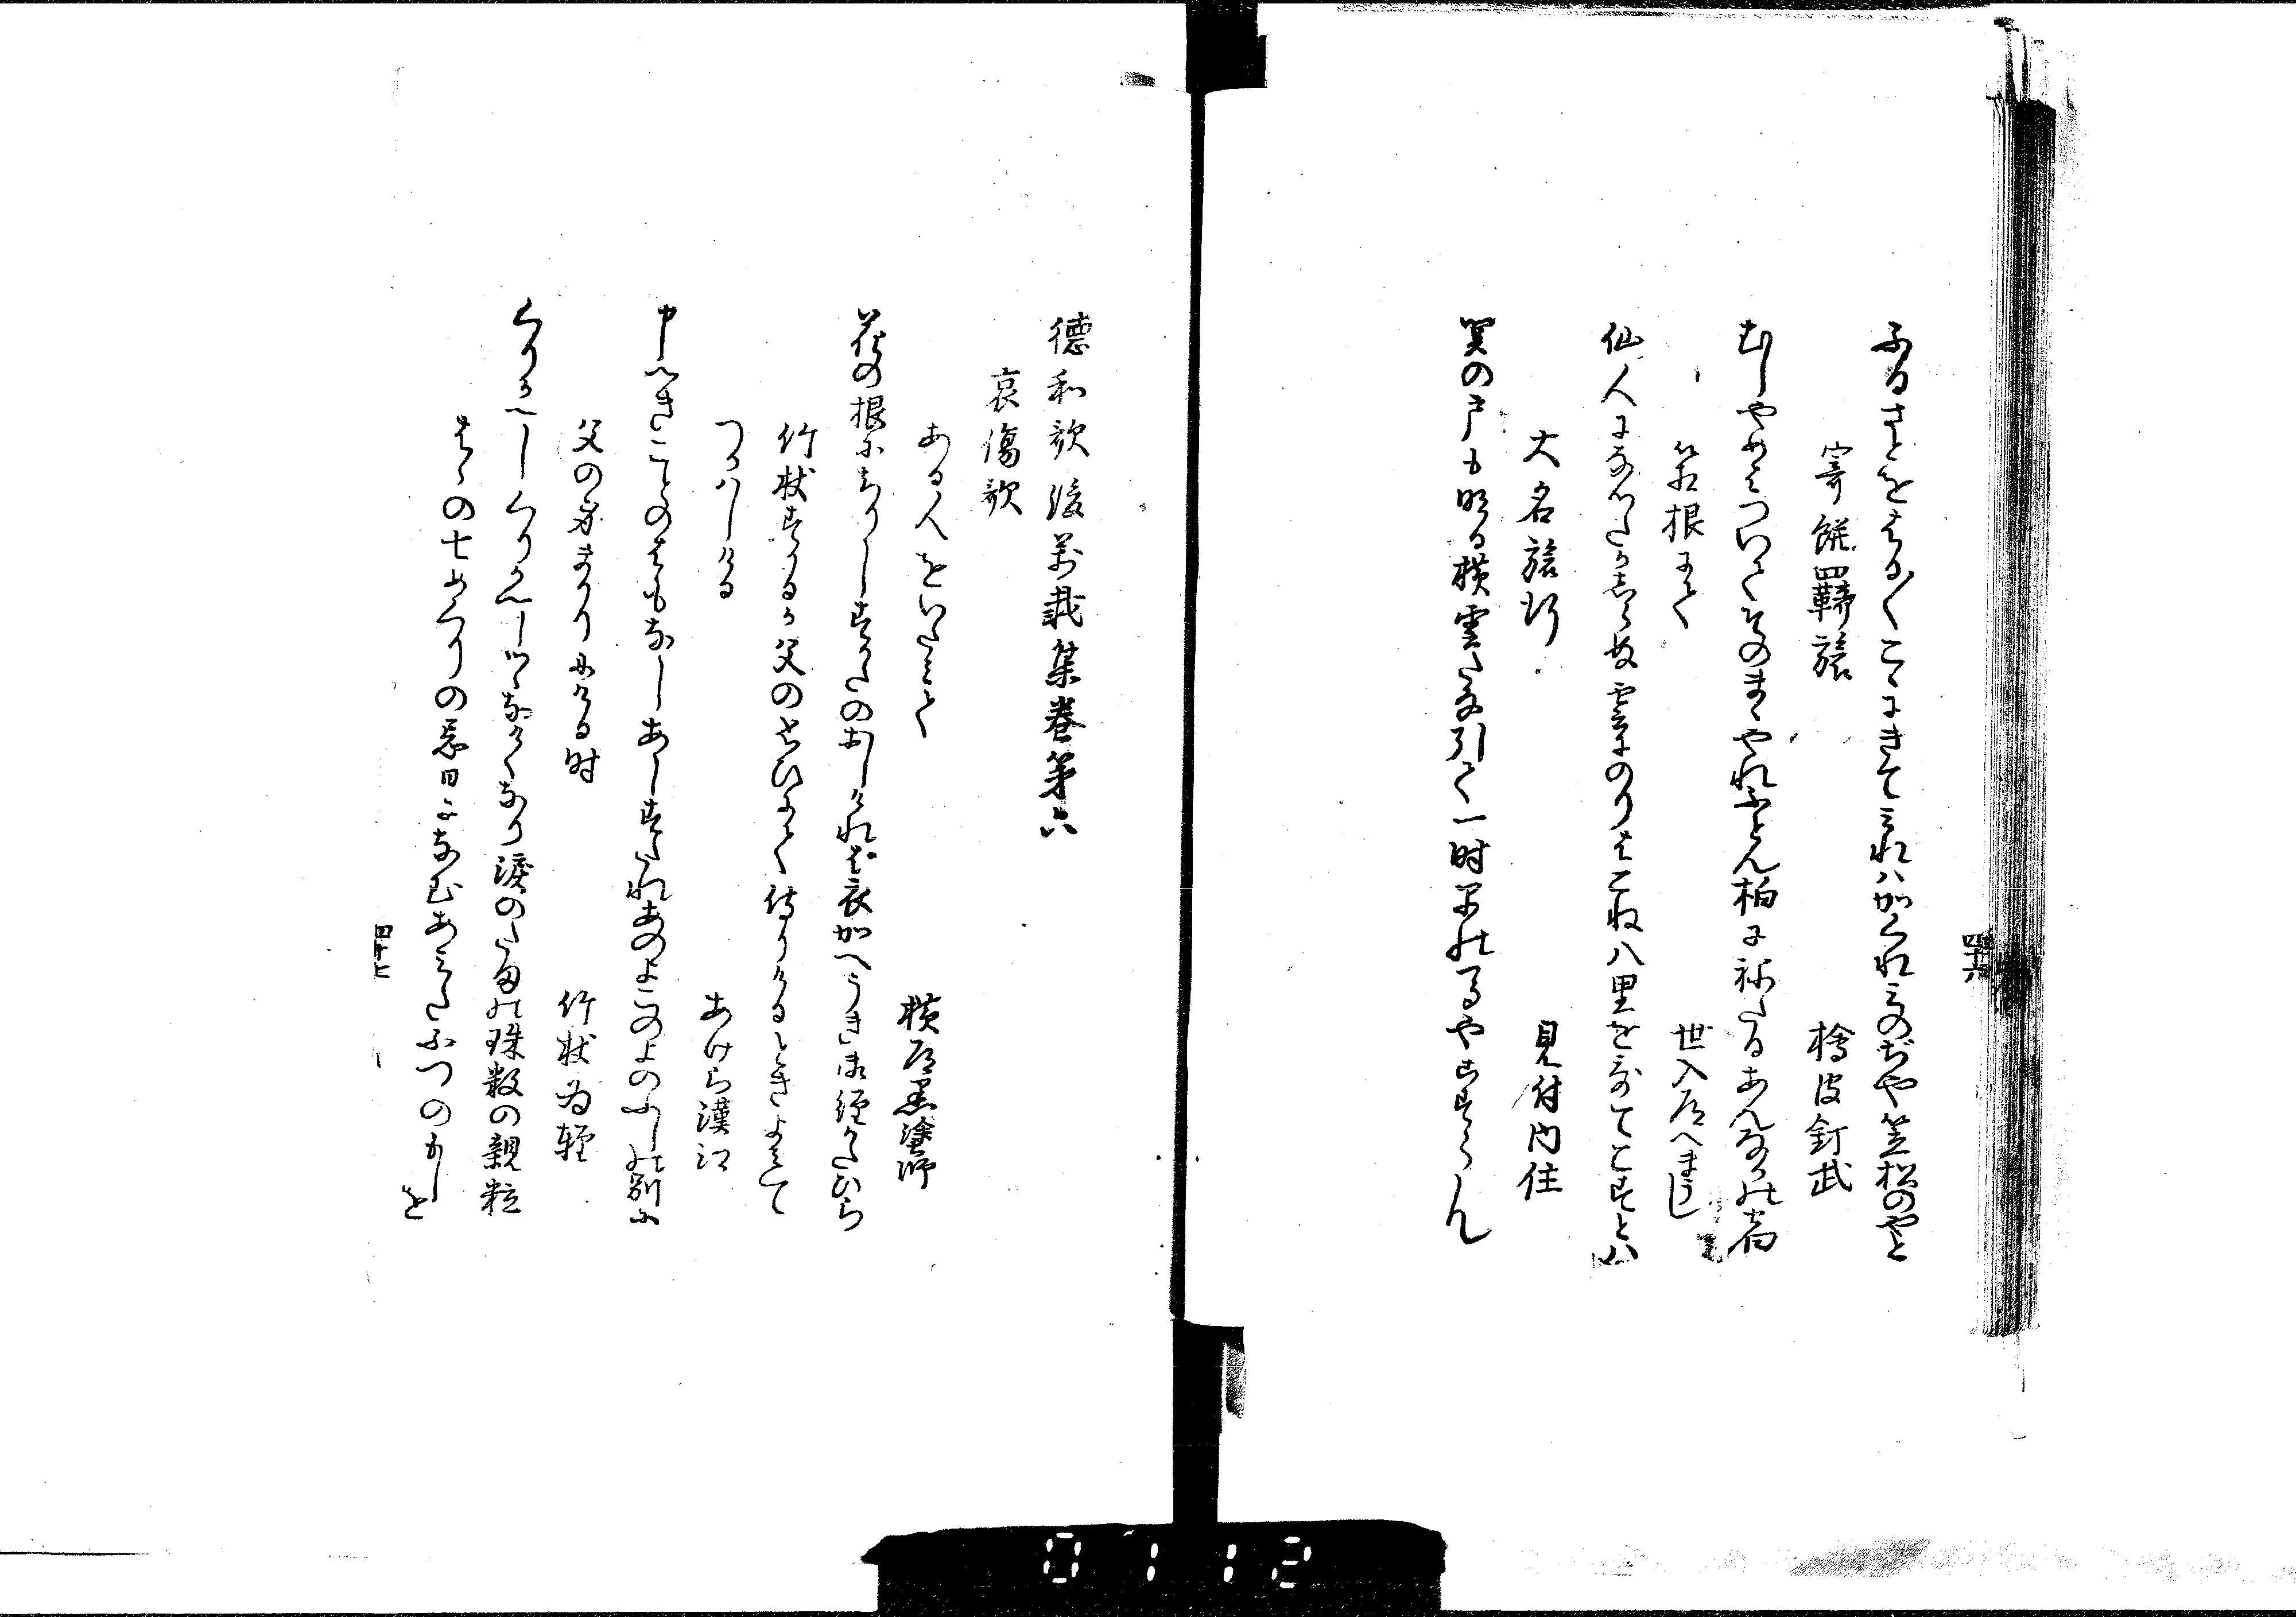 ふるさとをはる〱こゝにきて見れは加くれみのぢや笠松のやと
寄餅羈旅
檜皮釘武
むしやめをつけてそのまゝやれふとん柏にねたるあんなの者
箱根にて
世入道へまし
仙人になつたかしらぬ雲のりはこね八里を駕てこすとハ
大名旅行
見付内住
関の戸も明る横雲たな引て一時早のるやこすらん
四十六
徳和歌後万載集巻第六
哀傷歌
ある人をいたみて
横道黒塗師
花の根にちりしすかたのおしけれは衣加へうき御経かたひら
竹杖すかるか父のおひにて侍りけるときよみて
つかハしける
あけら漢江
申へきことのはもなしあしすたれあのよこのよのふしの別に
父の身まかりにける時
竹杖為軽
くりかへしくりかへしつゝなけくなり涙のたまの珠数の親粒
はゝの七めくりの忌日になむあみたふつのもしを
四十七
0112